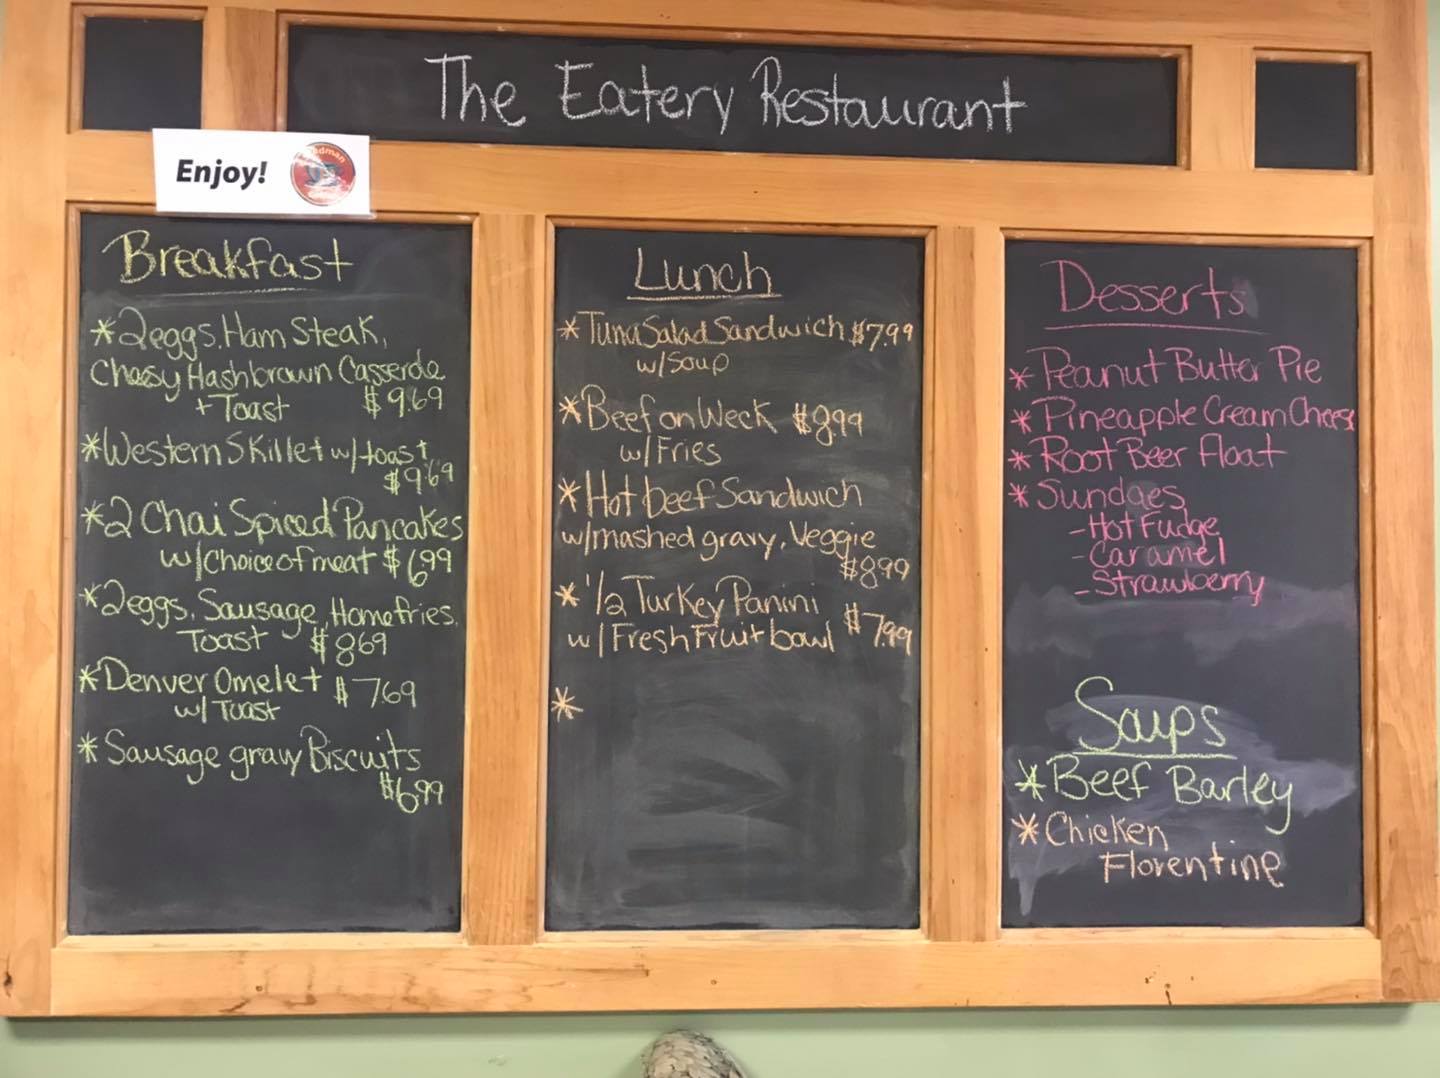 The Eatery Restaurant
Enjoy!
Breakfast
* 2 eggs, Ham Steak,
Cheesy Hashbrown Casserole
+ Toast $9.69
* Western Skillet w/toast
$9.69
* 2 Chai Spiced Pancakes
w/Choice of meat $6.99
* 2 eggs, Sausage, Homefries,
Toast $8.69
* Denver Omelet $7.69
w/ Toast
* Sausage gravy Biscuits
$6.99
Lunch
* Tuna Salad Sandwich $7.99
w/Soup
* Beef on Weck $8.99
w/Fries
* Hot beef Sandwich
w/mashed gravy, Veggie
$8.99
* 1/2 Turkey Panini
w/Fresh Fruit bowl $7.99
*
Desserts
* Peanut Butter Pie
* Pineapple Cream Cheese
* Root Beer Float
* Sundaes
- Hot Fudge
- Caramel
- Strawberry
Soups
* Beef Barley
* Chicken
Florentine